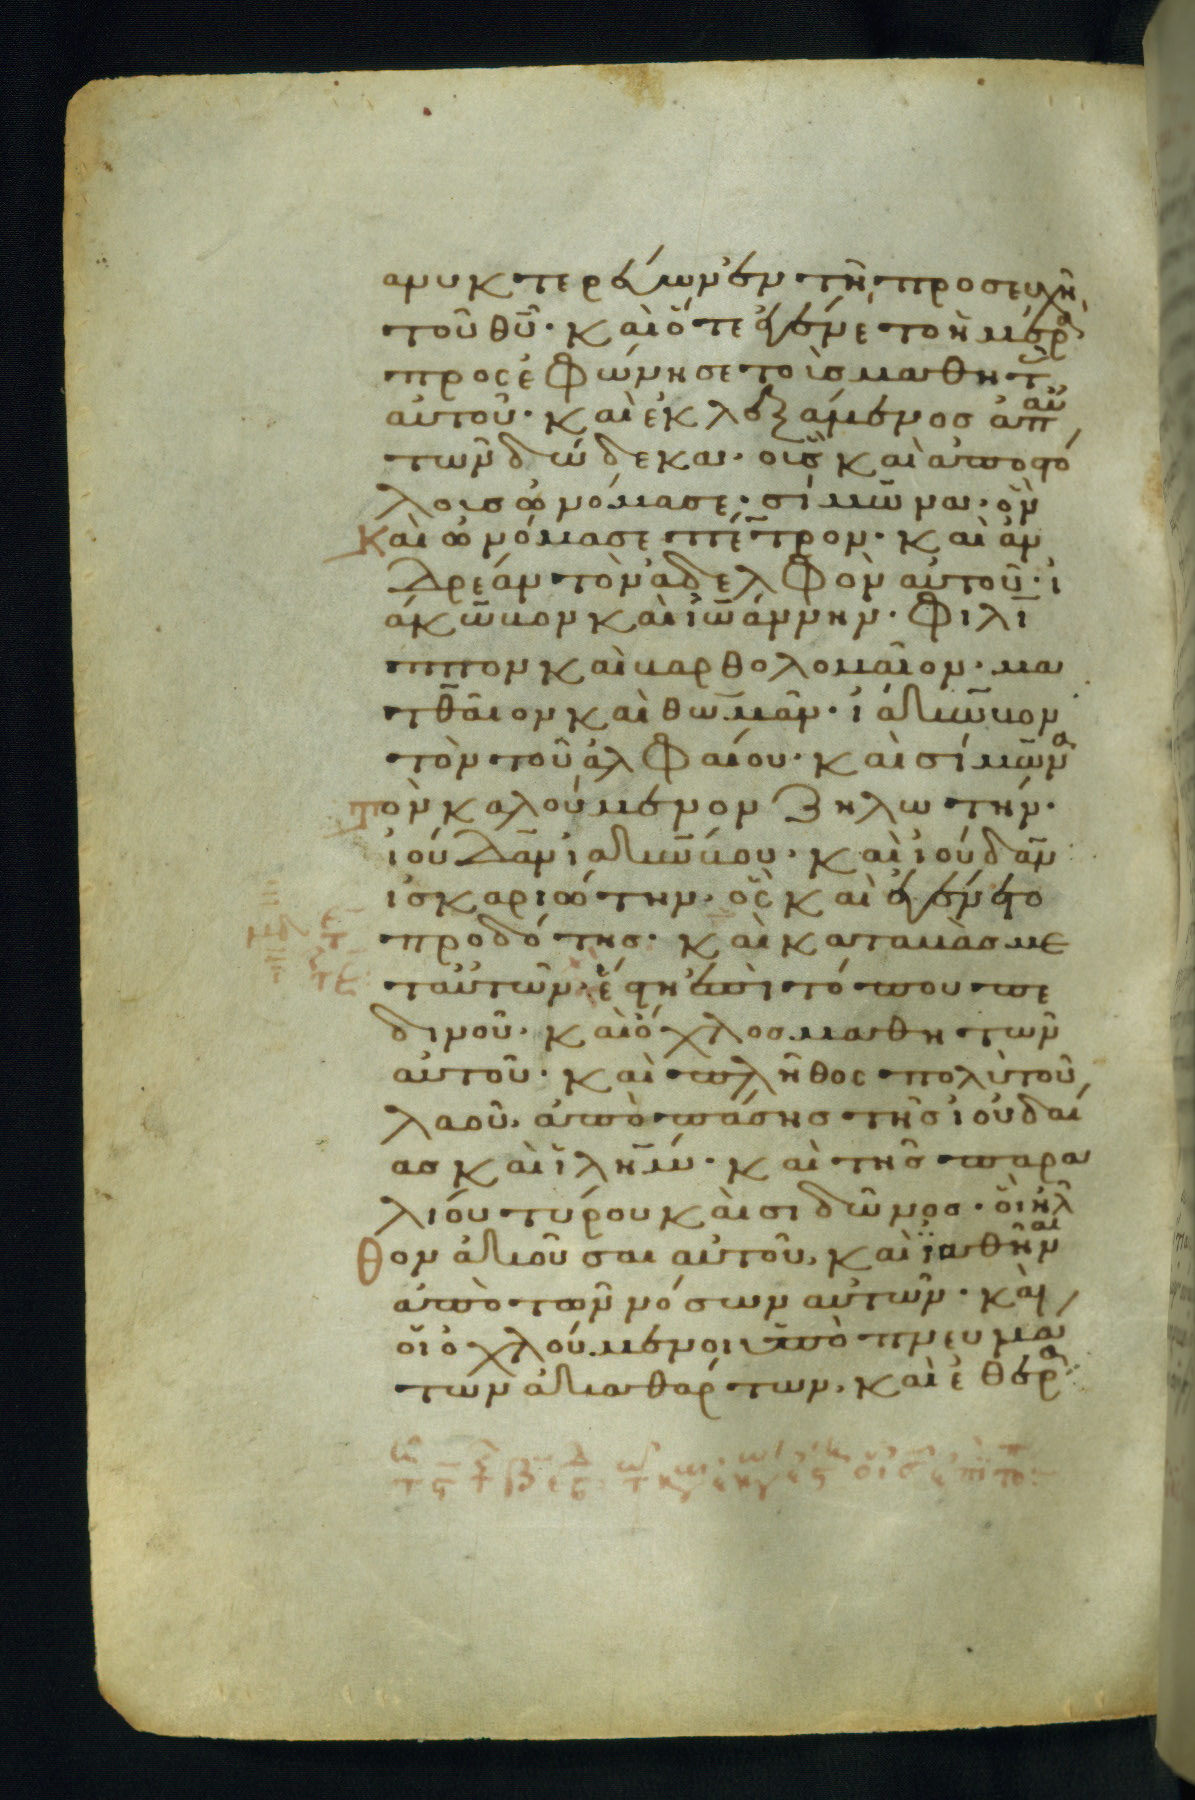 αμυκτερεύων ἐν τῆ προσευχῆ
τοῦ θῦ· καὶ ὅτε ἐγένετο ἡμέρα
προσεφώνησε τοὶσ μαθητ
αὐτοῦ· καὶ ἐκλεξάμενοσ ἀπ αὐ
τῶν δώδεκα· οὓσ καὶ ἀποστό
λουσ ὠνόμασε· σίμωνα· ὃν
καὶ ὠνόμασε πέτρον· καὶ ἀν
δρέαν τὸν ἀδελφὸν αὐτοῦ· ἰ
άκωβον καὶ ἰωάννην· φίλι
ππον καὶ βαρθολομαῖον· μα
τθαῖον καὶ θωμᾶν· ἰάκωβον
τὸν τοῦ ἀλφαίου· καὶ σίμωνα
τὸν καλούμενον ζηλωτήν·
ἰούδαν ἰακώβου· καὶ ἰούδαν
ἰσκαριώτην, ὃς καὶ ἐγένετο
προδότησ· καὶ καταβὰσ με
τ αὐτῶν, ἔστη ἐπὶ τόπου πε
δινοῦ· καὶ ὄχλοσ μαθητῶν
αὐτοῦ· καὶ πλῆθος πολὺ τοῦ
λαοῦ, ἀπὸ πάσησ τῆσ ἰουδαί
ασ καὶ ἰλῆμ· καὶ τῆσ παρα
λίου τύρου καὶ σιδῶνοσ· οἳ ἦλ
θον ἀκοῦσαι αὐτοῦ, καὶ ἰαθῆναι
ἀπὸ τῶν νόσων αὐτῶν· καὶ
οἱ ὀχλούμενοι ὑπὸ πνευμά
των ἀκαθάρτων, καὶ ἐθερα